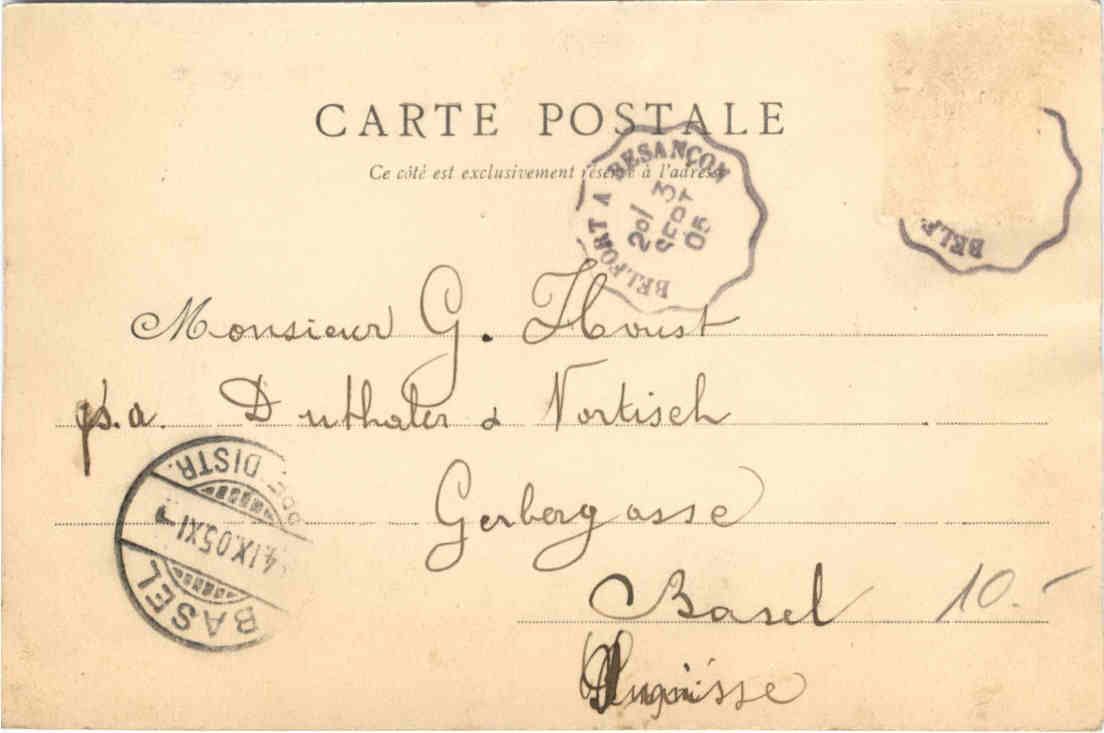 CARTE POSTALE
Ce côté est exclusivement réservé à l'adresse
BELFORT A BESANÇON
SEPT
05
BELF
Monsieur G. Houst
p.a. Duthaler & Vortisch
Gerbergasse
BASEL
DISTR.
4.IX.05.XI
Basel
10.-